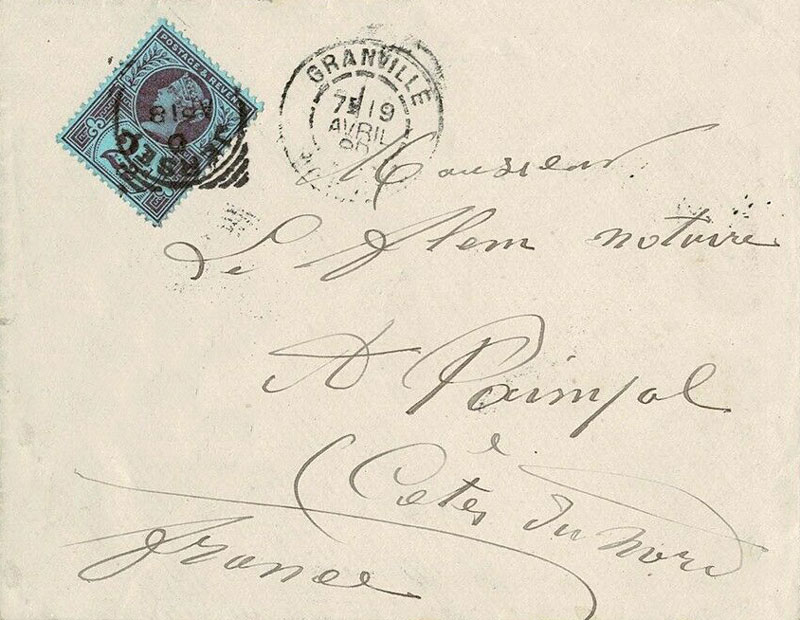 POSTAGE & REVENUE
JERSEY
AP 18
GRANVILLE
7E 19
AVRIL
90
Monsieur
Le Flem notaire
A Paimpol
(Côtes du Nord
France